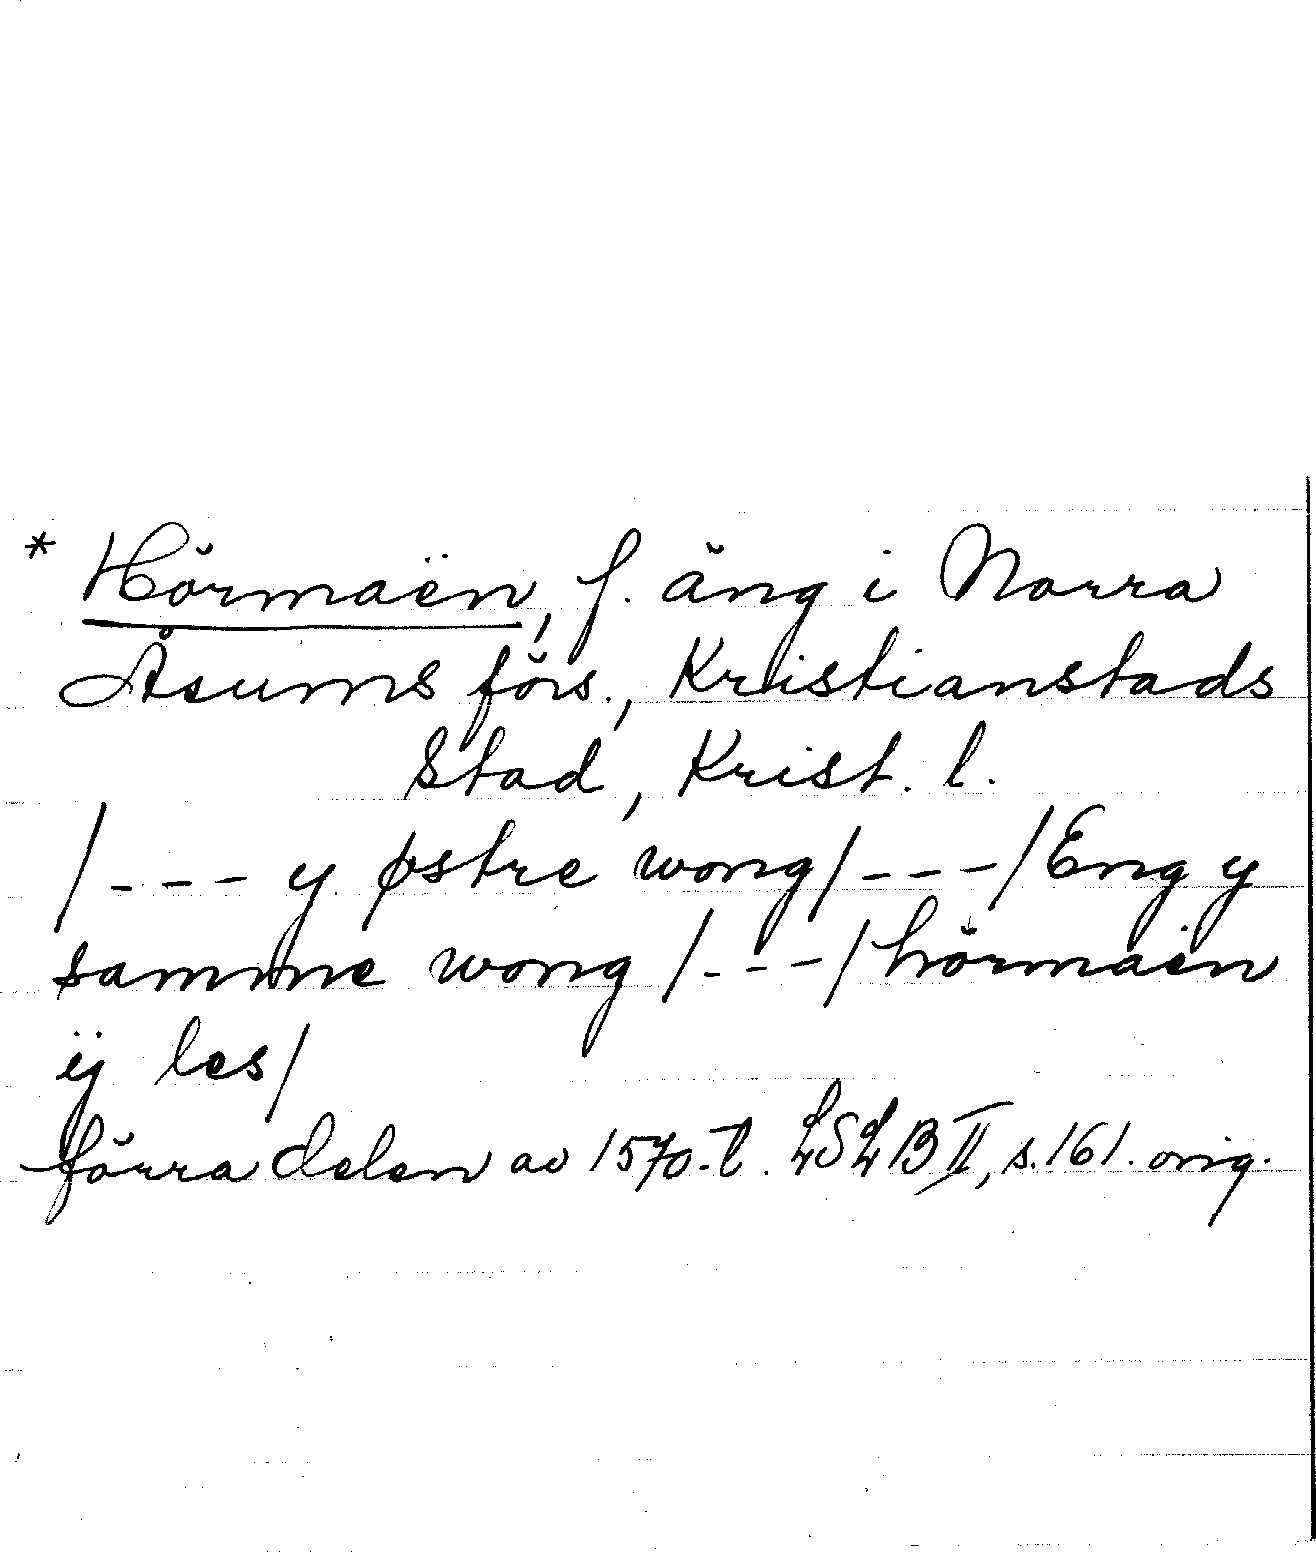 * Hörmaën, f. äng i Norra
Åsums förs., Kristianstads
Stad, Krist. l.
/--- y østre wong/---/Eng y
samme wong /---/hörmaen
ÿ les/
förra delen av 1570-t. LSLB II, s. 161. orig.